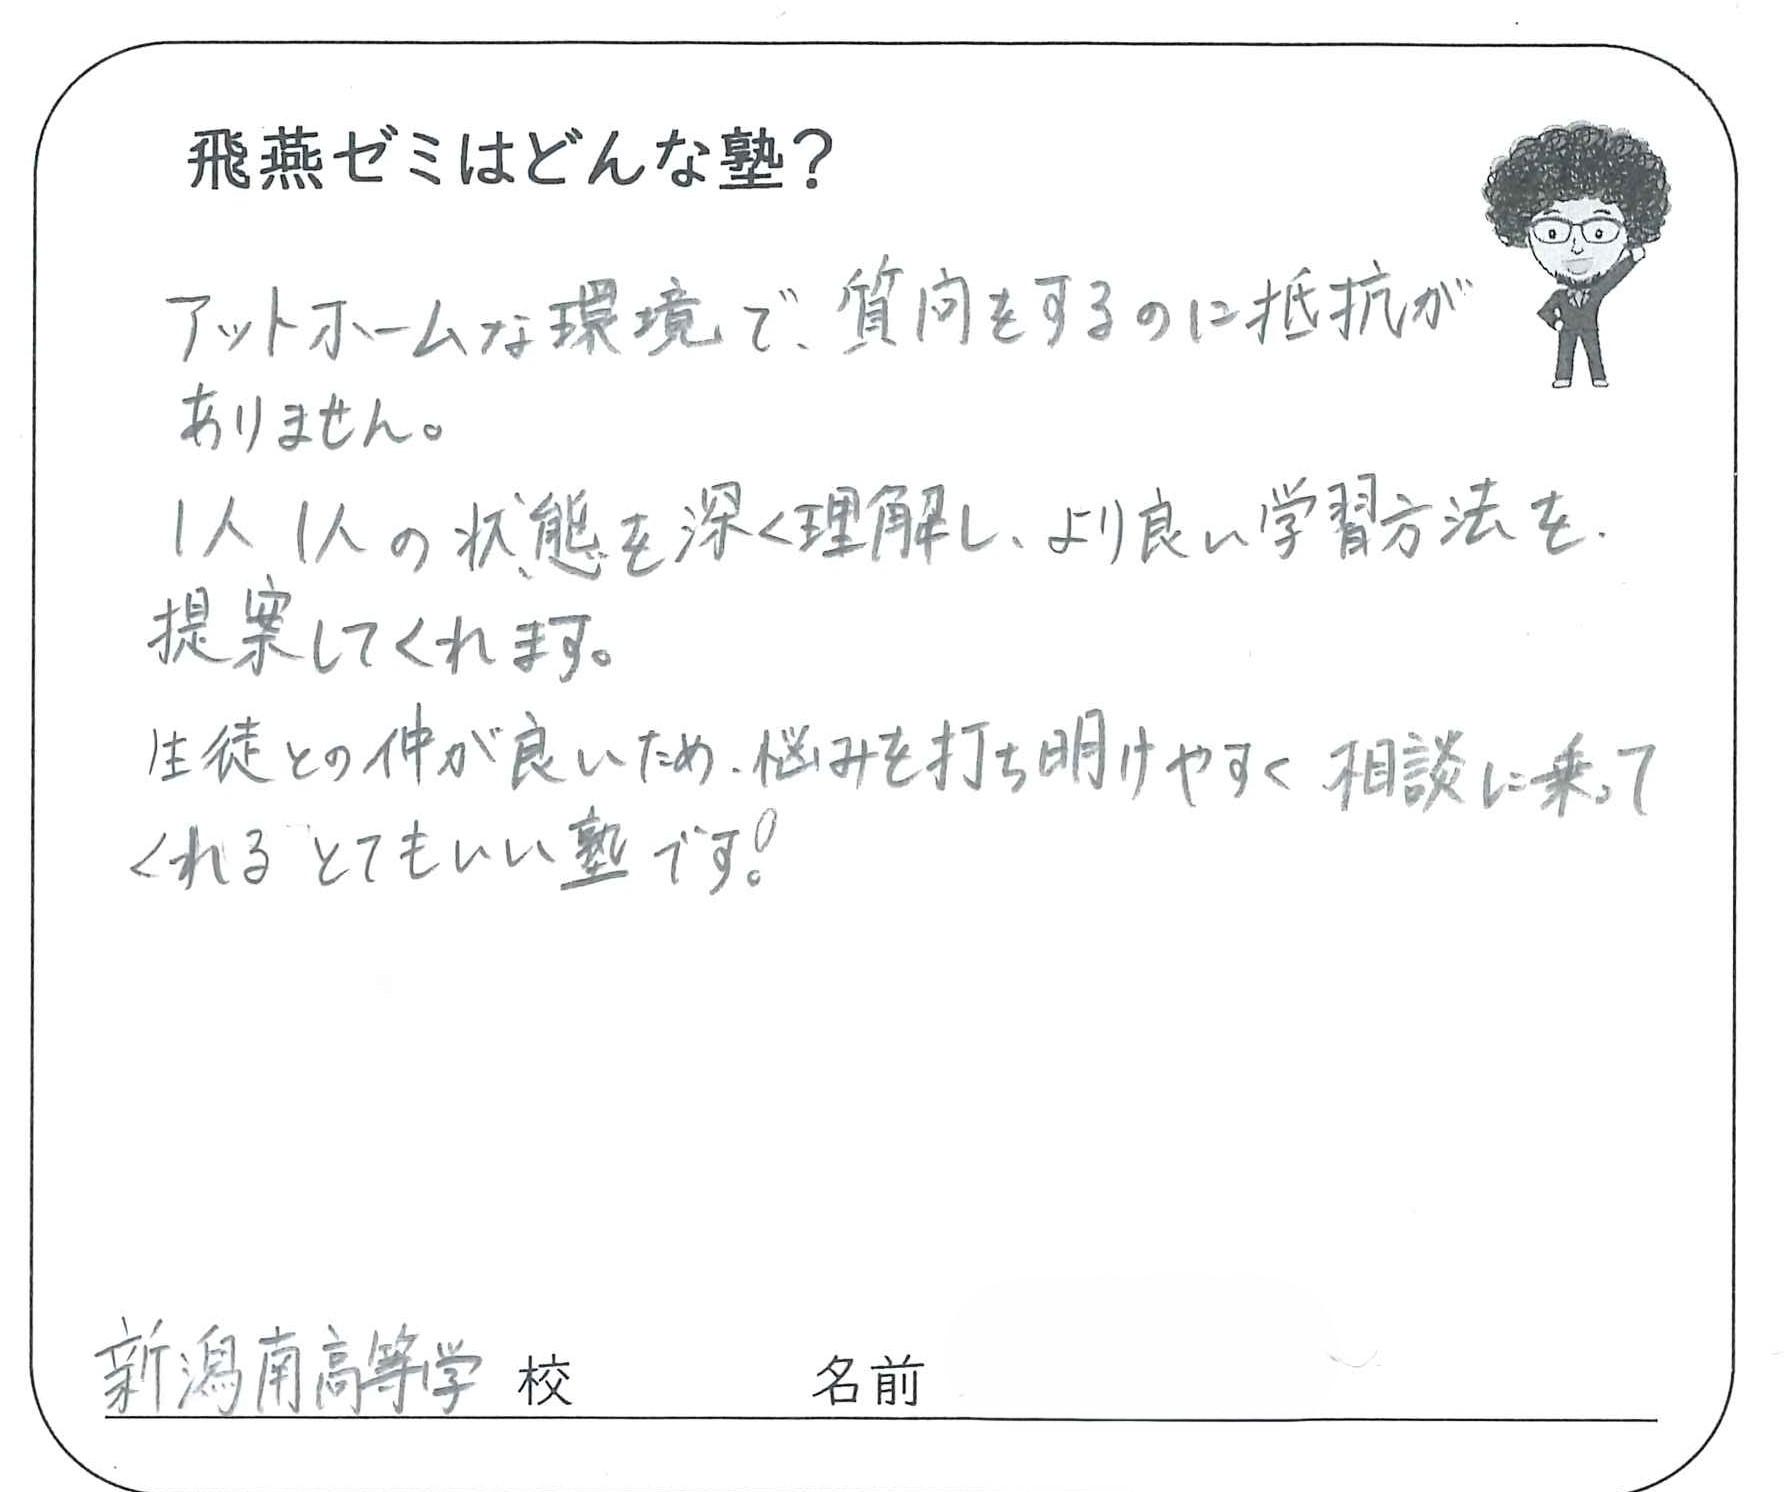 飛燕ゼミはどんな塾？
アットホームな環境で、質向をするのに抵抗が
ありません。
1人1人の状態を深く理解し、より良い学習方法を、
提案してくれます。
生徒との仲が良いため、悩みを打ち明けやすく相談に乗って
くれるとてもいい塾です!
新潟南高等学校 名前